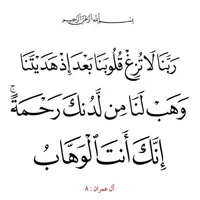 بِسْمِ اللَّهِ الرَّحْمَٰنِ الرَّحِيمِ
رَبَّنَا لَا تُزِغْ قُلُوبَنَا بَعْدَ إِذْ هَدَيْتَنَا
وَهَبْ لَنَا مِن لَّدُنكَ رَحْمَةً ۚ
إِنَّكَ أَنتَ ٱلْوَهَّابُ
آل عمران : ٨